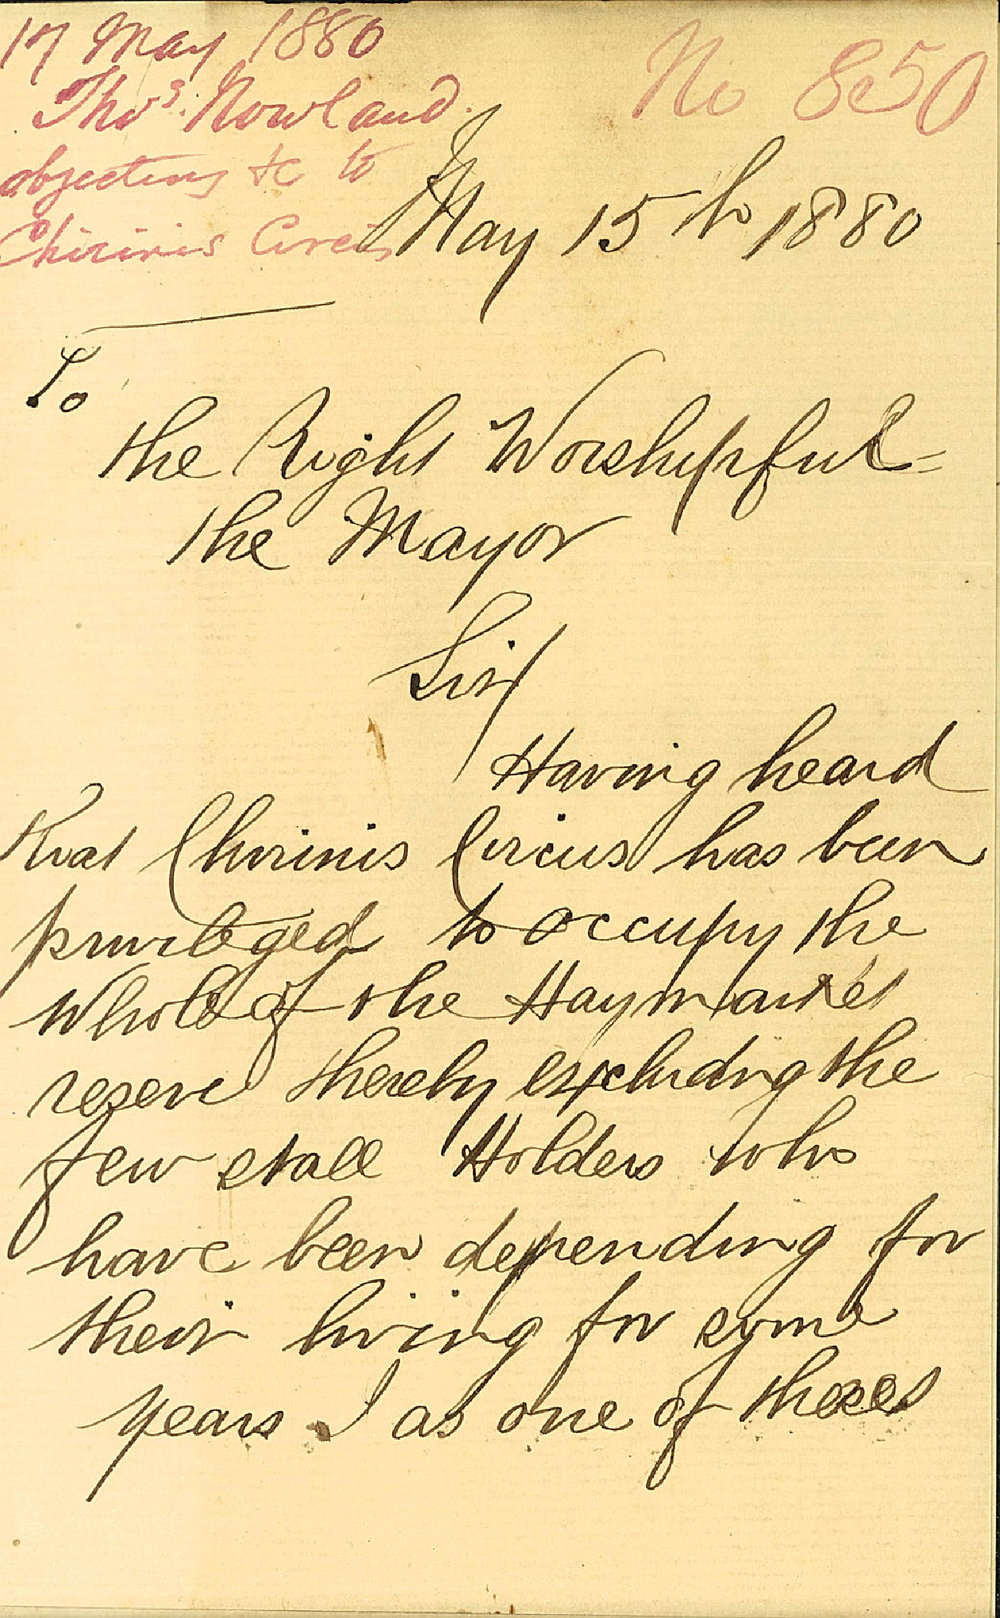 17 May 1880
Thos. Nowland
objecting &c to
Chirinis Circus
No 850
May 15th 1880
To
the Right Worshipful =
the Mayor
Sir/
Having heard
that Chirinis Circus has been
privileged to occupy the
whole of the Haymarket
reserve thereby excluding the
few stall Holders who
have been depending for
their living for some
years I as one of theses